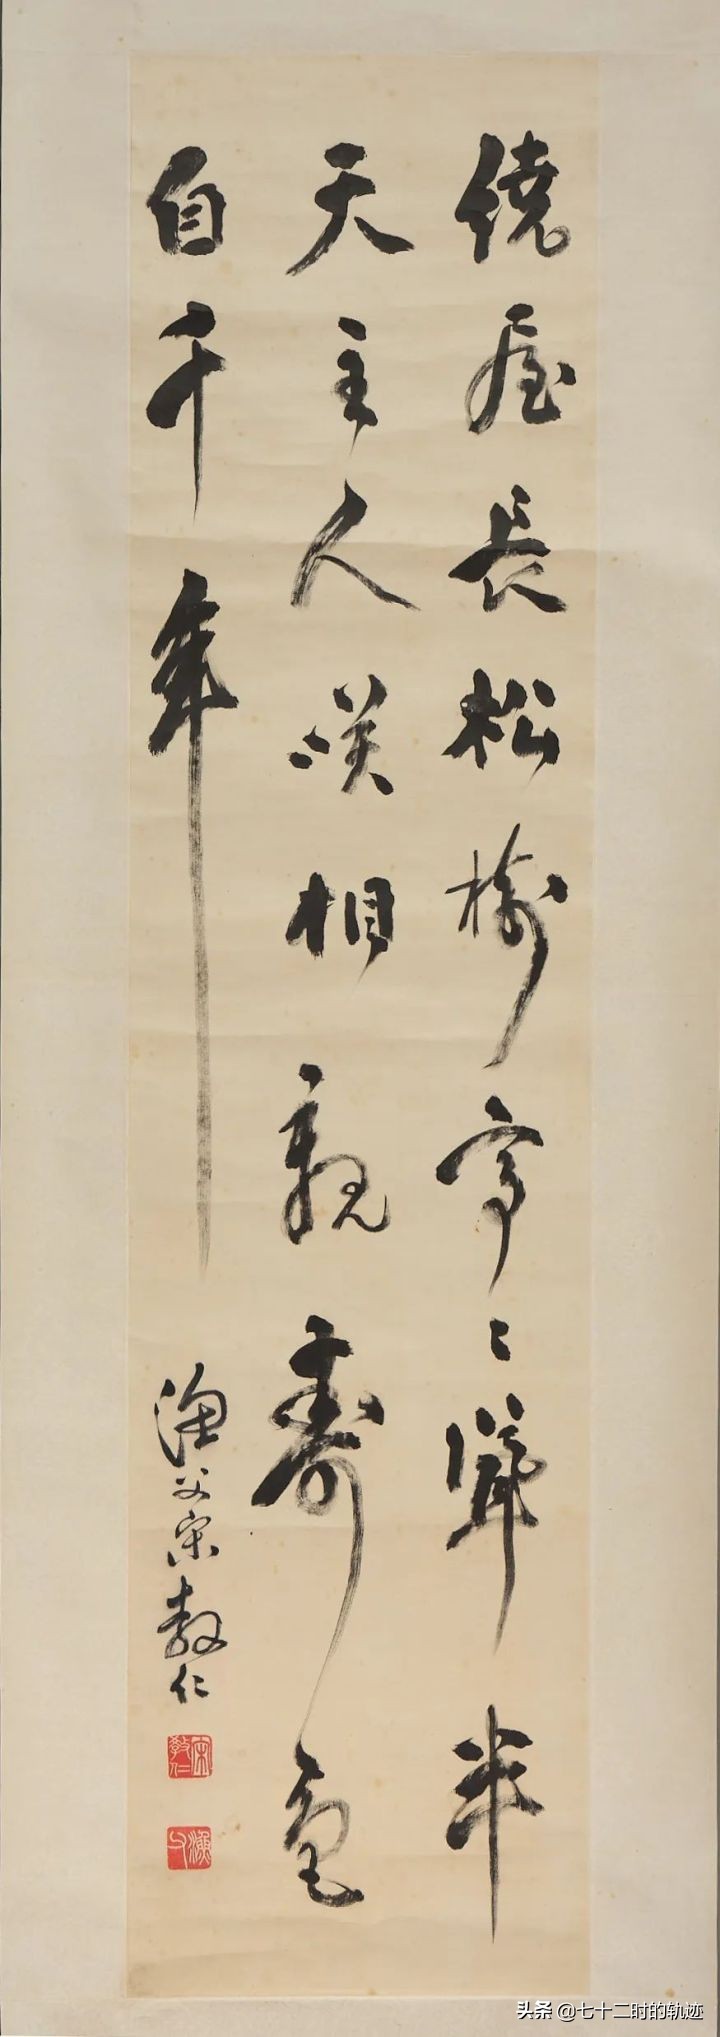 繞屋長松樹亭々聳半
天主人咲相親壽色
自千年
漁父宋教仁
宋教仁
漁父
头条 @七十二时的轨迹